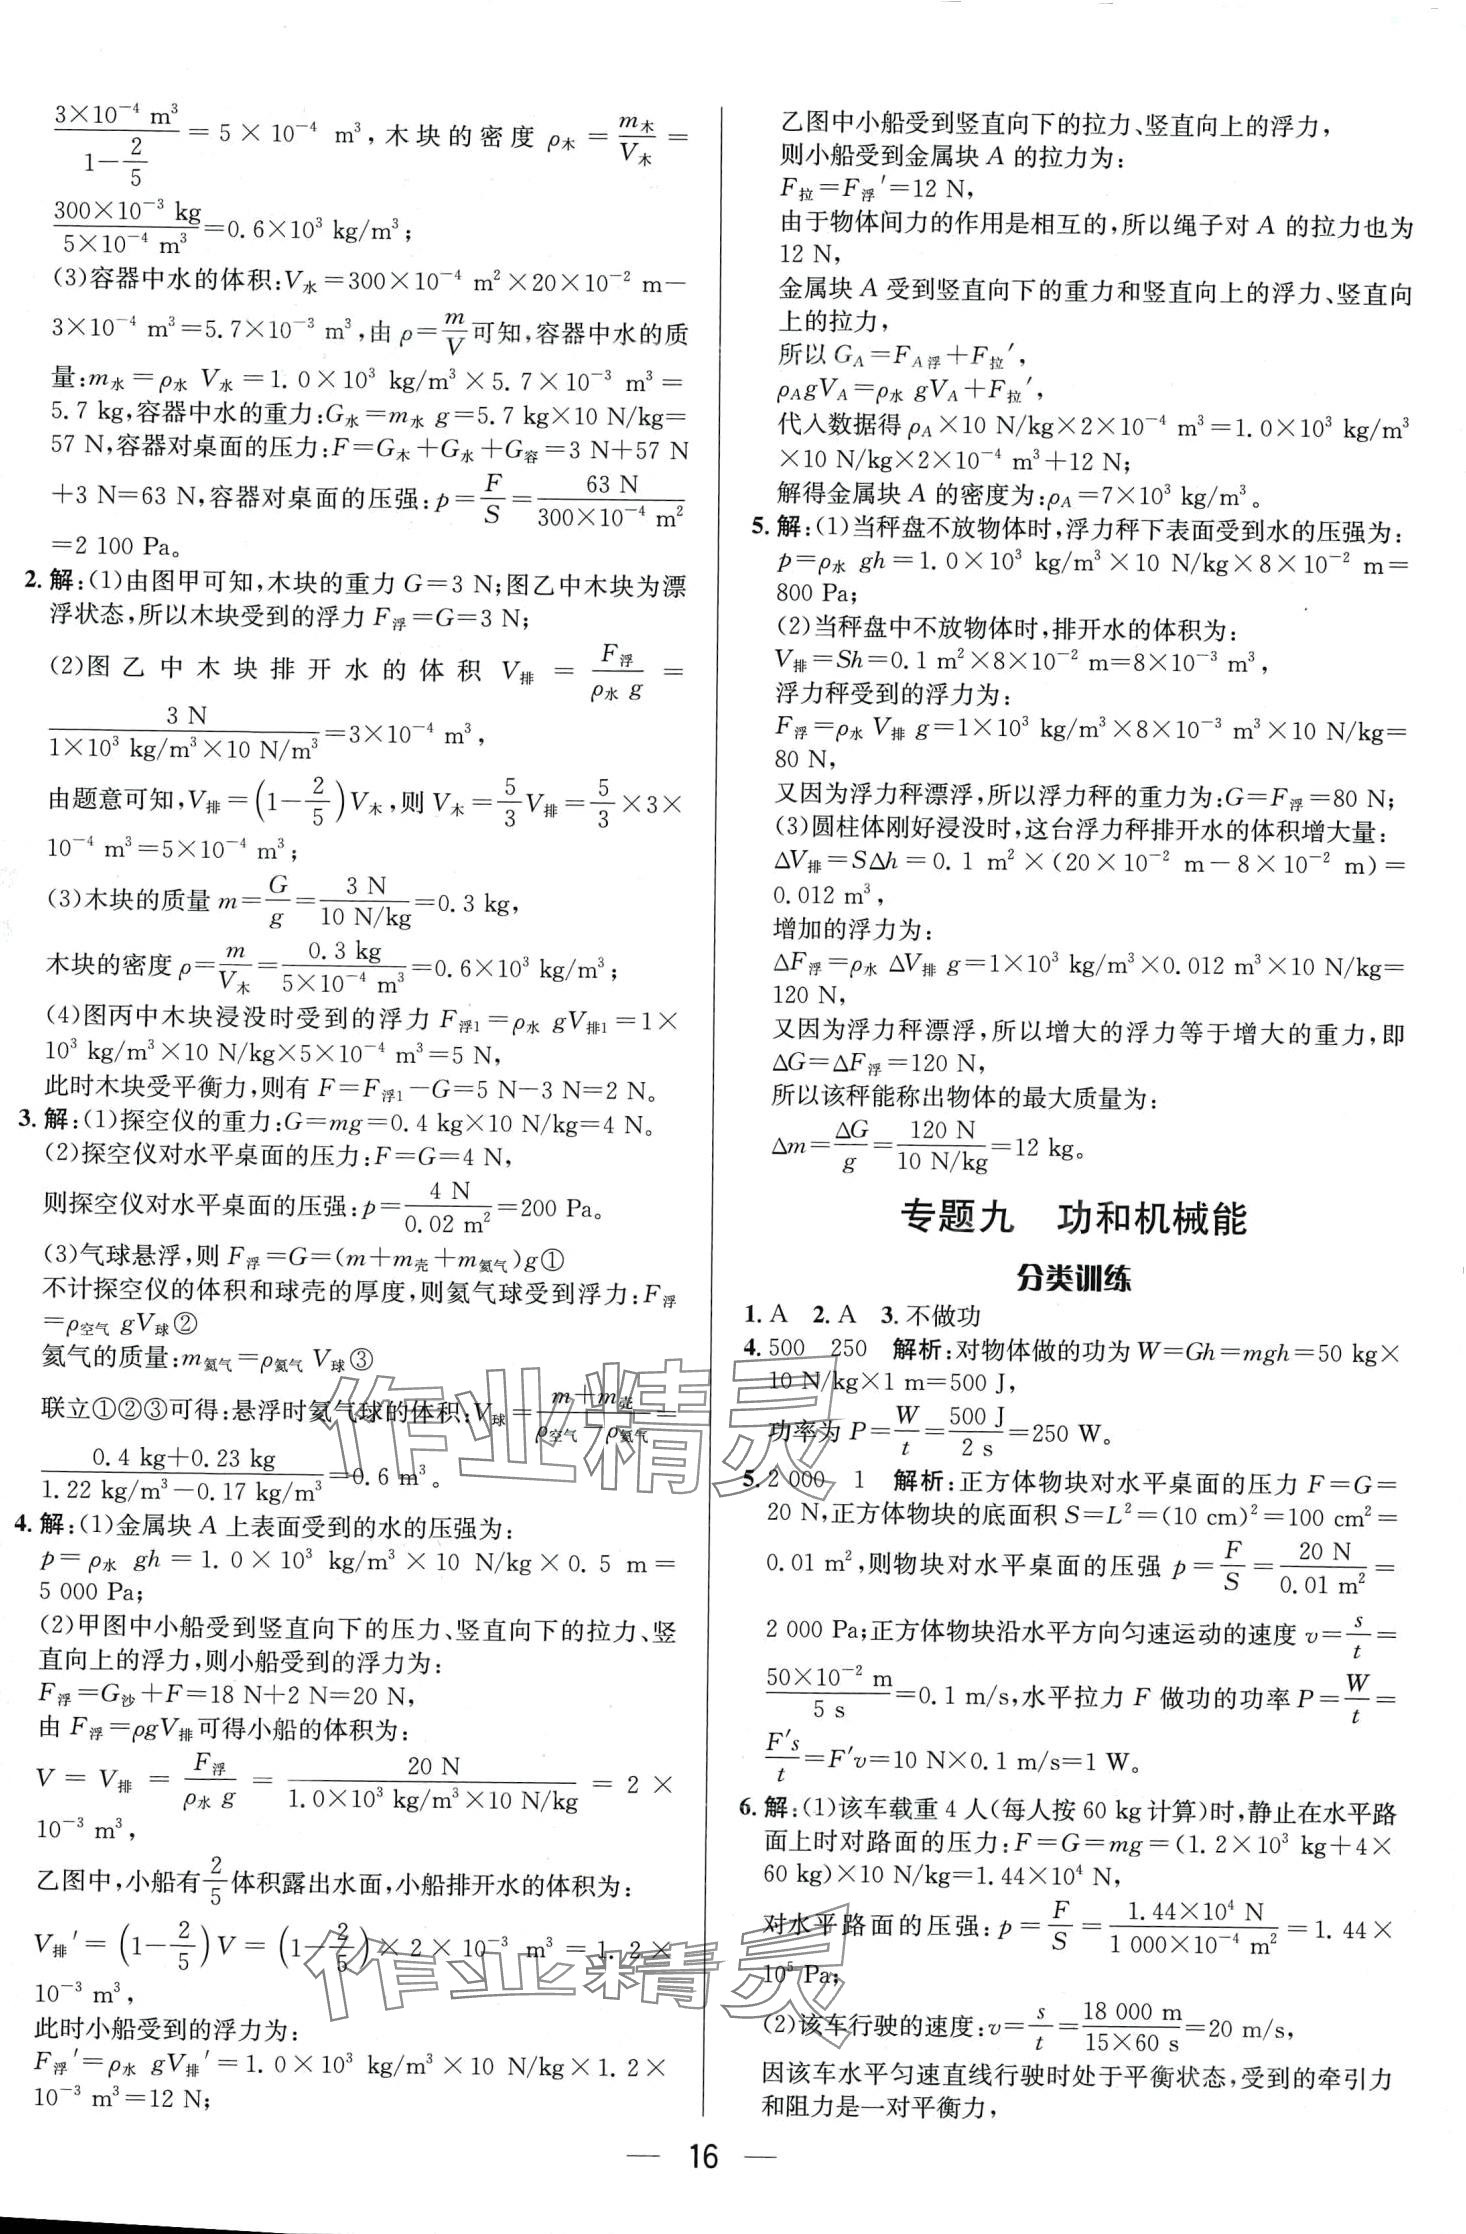 3×10⁻⁴ m³/(1－2/5)＝5×10⁻⁴ m³，木块的密度 ρ木＝m木/V木＝
300×10⁻³ kg/5×10⁻⁴ m³＝0.6×10³ kg/m³；
(3)容器中水的体积：V水＝300×10⁻⁴ m²×20×10⁻² m－
3×10⁻⁴ m³＝5.7×10⁻³ m³，由 ρ＝m/V可知，容器中水的质
量：m水＝ρ水 V水＝1.0×10³ kg/m³×5.7×10⁻³ m³＝
5.7 kg，容器中水的重力：G水＝m水 g＝5.7 kg×10 N/kg＝
57 N，容器对桌面的压力：F＝G木＋G水＋G容＝3 N＋57 N
＋3 N＝63 N，容器对桌面的压强：p＝F/S＝63 N/300×10⁻⁴ m²
＝2 100 Pa。
2. 解：(1)由图甲可知，木块的重力 G＝3 N；图乙中木块为漂
浮状态，所以木块受到的浮力 F浮＝G＝3 N；
(2)图乙中木块排开水的体积 V排＝F浮/ρ水 g＝
3 N/1×10³ kg/m³×10 N/m³＝3×10⁻⁴ m³，
由题意可知，V排＝(1－2/5)V木，则 V木＝5/3V排＝5/3×3×
10⁻⁴ m³＝5×10⁻⁴ m³；
(3)木块的质量 m＝G/g＝3 N/10 N/kg＝0.3 kg，
木块的密度 ρ＝m/V木＝0.3 kg/5×10⁻⁴ m³＝0.6×10³ kg/m³；
(4)图丙中木块浸没时受到的浮力 F浮1＝ρ水 gV排1＝1×
10³ kg/m³×10 N/kg×5×10⁻⁴ m³＝5 N，
此时木块受平衡力，则有 F＝F浮1－G＝5 N－3 N＝2 N。
3. 解：(1)探空仪的重力：G＝mg＝0.4 kg×10 N/kg＝4 N。
(2)探空仪对水平桌面的压力：F＝G＝4 N，
则探空仪对水平桌面的压强：p＝4 N/0.02 m²＝200 Pa。
(3)气球悬浮，则 F浮＝G＝(m＋m壳＋m氦气)g①
不计探空仪的体积和球壳的厚度，则氦气球受到浮力：F浮
＝ρ空气 gV球②
氦气的质量：m氦气＝ρ氦气 V球③
联立①②③可得：悬浮时氦气球的体积：V球＝(m＋m壳)/(ρ空气－ρ氦气)＝
0.4 kg＋0.23 kg/1.22 kg/m³－0.17 kg/m³＝0.6 m³。
4. 解：(1)金属块 A 上表面受到的水的压强为：
p＝ρ水 gh＝1.0×10³ kg/m³×10 N/kg×0.5 m＝
5 000 Pa；
(2)甲图中小船受到竖直向下的压力、竖直向下的拉力、竖
直向上的浮力，则小船受到的浮力为：
F浮＝G沙＋F＝18 N＋2 N＝20 N，
由 F浮＝ρgV排可得小船的体积为：
V＝V排＝F浮/ρ水 g＝20 N/1.0×10³ kg/m³×10 N/kg＝2×
10⁻³ m³，
乙图中，小船有2/5体积露出水面，小船排开水的体积为：
V排′＝(1－2/5)V＝(1－2/5)×2×10⁻³ m³＝1.2×
10⁻³ m³，
此时小船受到的浮力为：
F浮′＝ρ水 gV排′＝1.0×10³ kg/m³×10 N/kg×1.2×
10⁻³ m³＝12 N；
乙图中小船受到竖直向下的拉力、竖直向上的浮力，
则小船受到金属块 A 的拉力为：
F拉＝F浮′＝12 N，
由于物体间力的作用是相互的，所以绳子对 A 的拉力也为
12 N，
金属块 A 受到竖直向下的重力和竖直向上的浮力、竖直向
上的拉力，
所以 GA＝FA浮＋F拉′，
ρAgVA＝ρ水 gVA＋F拉′，
代入数据得 ρA×10 N/kg×2×10⁻⁴ m³＝1.0×10³ kg/m³
×10 N/kg×2×10⁻⁴ m³＋12 N；
解得金属块 A 的密度为：ρA＝7×10³ kg/m³。
5. 解：(1)当秤盘不放物体时，浮力秤下表面受到水的压强为：
p＝ρ水 gh＝1.0×10³ kg/m³×10 N/kg×8×10⁻² m＝
800 Pa；
(2)当秤盘中不放物体时，排开水的体积为：
V排＝Sh＝0.1 m²×8×10⁻² m＝8×10⁻³ m³，
浮力秤受到的浮力为：
F浮＝ρ水 V排 g＝1×10³ kg/m³×8×10⁻³ m³×10 N/kg＝
80 N，
又因为浮力秤漂浮，所以浮力秤的重力为：G＝F浮＝80 N；
(3)圆柱体刚好浸没时，这台浮力秤排开水的体积增大量：
ΔV排＝SΔh＝0.1 m²×(20×10⁻² m－8×10⁻² m)＝
0.012 m³，
增加的浮力为：
ΔF浮＝ρ水 ΔV排 g＝1×10³ kg/m³×0.012 m³×10 N/kg＝
120 N，
又因为浮力秤漂浮，所以增大的浮力等于增大的重力，即
ΔG＝ΔF浮＝120 N，
所以该秤能称出物体的最大质量为：
Δm＝ΔG/g＝120 N/10 N/kg＝12 kg。
专题九 功和机械能
分类训练
1. A 2. A 3. 不做功
4. 500 250 解析：对物体做的功为 W＝Gh＝mgh＝50 kg×
10 N/kg×1 m＝500 J，
功率为 P＝W/t＝500 J/2 s＝250 W。
5. 2 000 1 解析：正方体物块对水平桌面的压力 F＝G＝
20 N，正方体物块的底面积 S＝L²＝(10 cm)²＝100 cm²＝
0.01 m²，则物块对水平桌面的压强 p＝F/S＝20 N/0.01 m²＝
2 000 Pa；正方体物块沿水平方向匀速运动的速度 v＝s/t＝
50×10⁻² m/5 s＝0.1 m/s，水平拉力 F 做功的功率 P＝W/t＝
F′s/t＝F′v＝10 N×0.1 m/s＝1 W。
6. 解：(1)该车载重 4 人(每人按 60 kg 计算)时，静止在水平路
面上时对路面的压力：F＝G＝mg＝(1.2×10³ kg＋4×
60 kg)×10 N/kg＝1.44×10⁴ N，
对水平路面的压强：p＝F/S＝1.44×10⁴ N/1 000×10⁻⁴ m²＝1.44×
10⁵ Pa；
(2)该车行驶的速度：v＝s/t＝18 000 m/15×60 s＝20 m/s，
因该车水平匀速直线行驶时处于平衡状态，受到的牵引力
和阻力是一对平衡力，
— 16 —
作业精灵
作业精灵